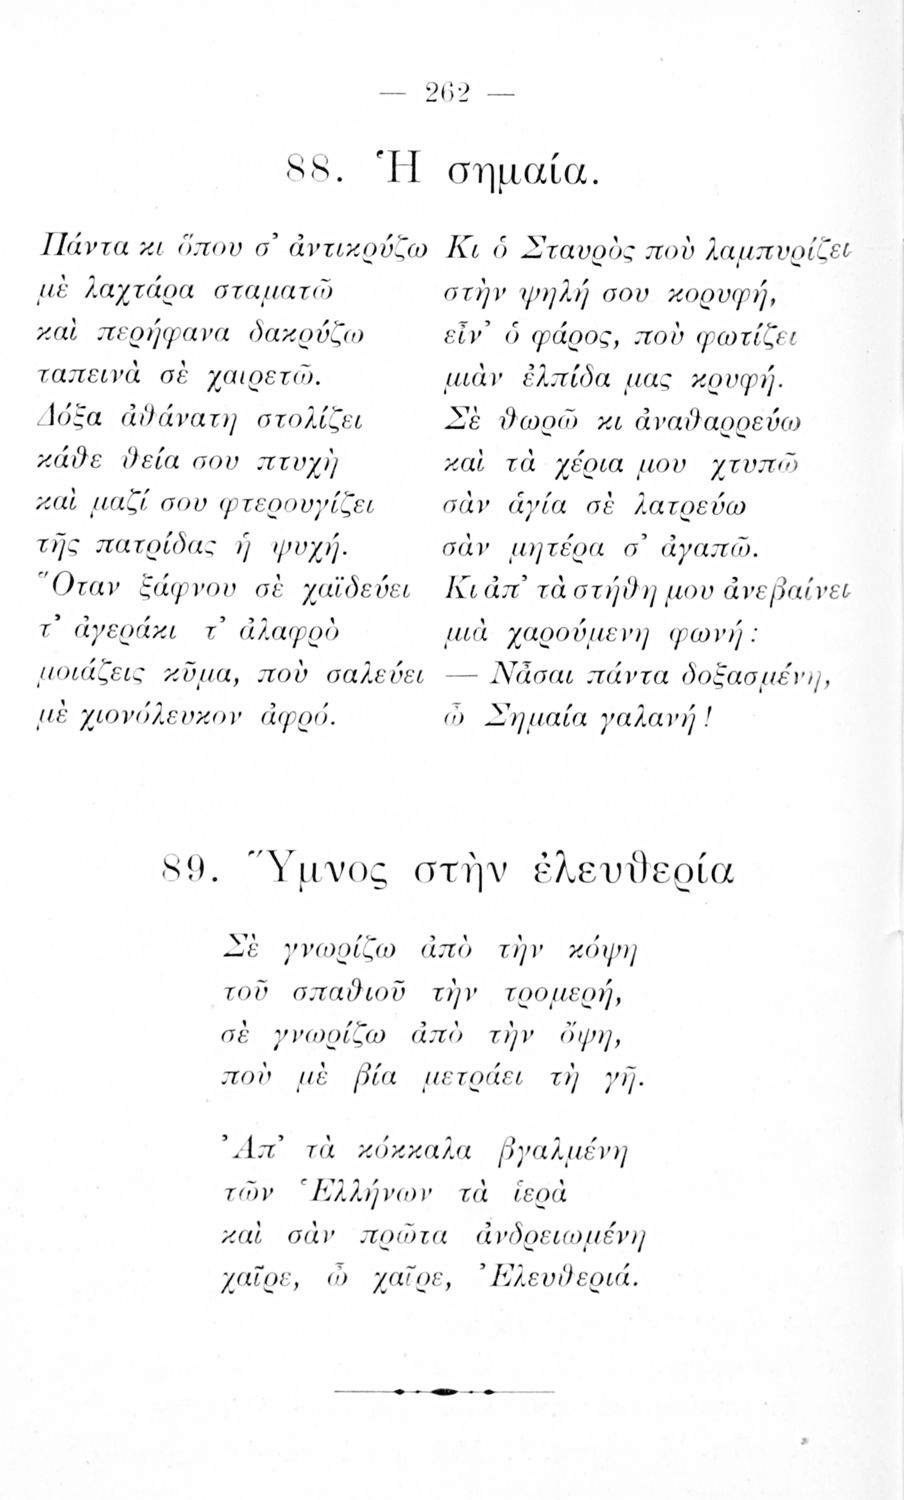 — 262 —
88. Ἡ σημαία.
Πάντα κι ὅπου σ’ ἀντικρύζω
μὲ λαχτάρα σταματῶ
καὶ περήφανα δακρύζω
ταπεινὰ σὲ χαιρετῶ.
Δόξα ἀθάνατη στολίζει
κάθε θεία σου πτυχὴ
καὶ μαζί σου φτερουγίζει
τῆς πατρίδας ἡ ψυχή.
Ὅταν ξάφνου σὲ χαϊδεύει
τ’ ἀγεράκι τ’ ἀλαφρὸ
μοιάζεις κῦμα, ποὺ σαλεύει
μὲ χιονόλευκον ἀφρό.
Κι ὁ Σταυρὸς ποὺ λαμπυρίζει
στὴν ψηλή σου κορυφή,
εἶν’ ὁ φάρος, ποὺ φωτίζει
μιὰν ἐλπίδα μας κρυφή.
Σὲ θωρῶ κι ἀναθαρρεύω
καὶ τὰ χέρια μου χτυπῶ
σὰν ἁγία σὲ λατρεύω
σὰν μητέρα σ’ ἀγαπῶ.
Κι ἀπ’ τὰ στήθη μου ἀνεβαίνει
μιὰ χαρούμενη φωνή:
— Νἆσαι πάντα δοξασμένη,
ὦ Σημαία γαλανή!
89. Ὕμνος στὴν ἐλευθερία
Σὲ γνωρίζω ἀπὸ τὴν κόψη
τοῦ σπαθιοῦ τὴν τρομερή,
σὲ γνωρίζω ἀπὸ τὴν ὄψη,
ποὺ μὲ βία μετράει τὴ γῆ.
Ἀπ’ τὰ κόκκαλα βγαλμένη
τῶν Ἑλλήνων τὰ ἱερὰ
καὶ σὰν πρῶτα ἀνδρειωμένη
χαῖρε, ὦ χαῖρε, Ἐλευθεριά.